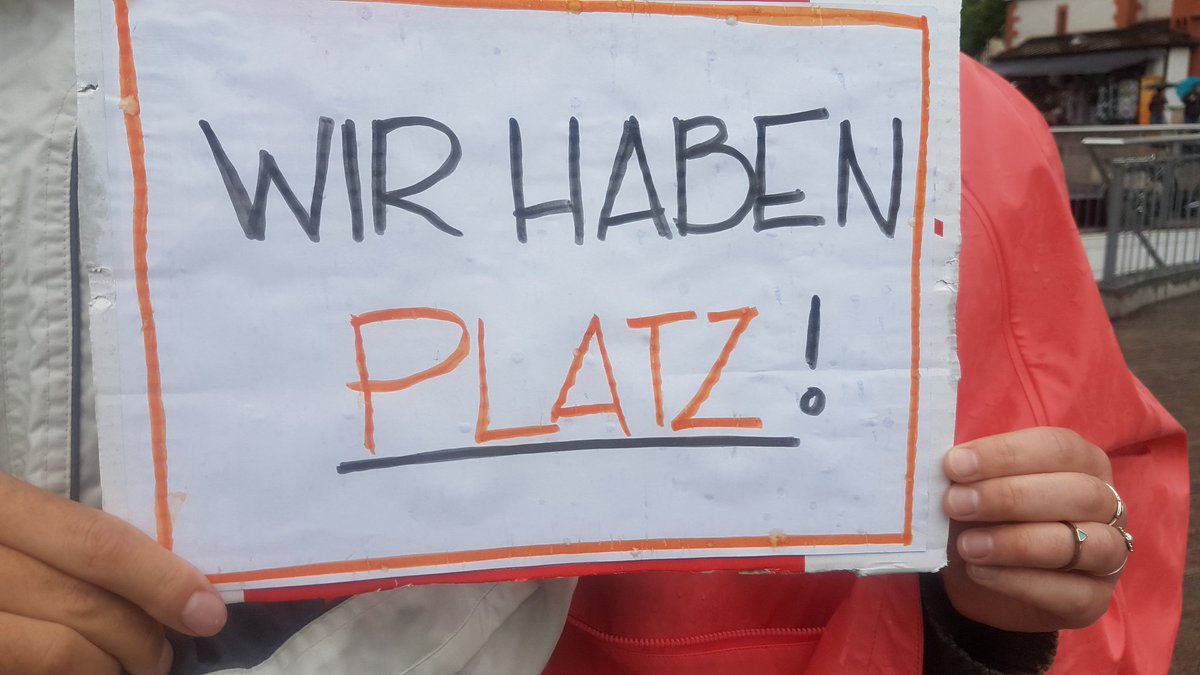 WIR HABEN
PLATZ!